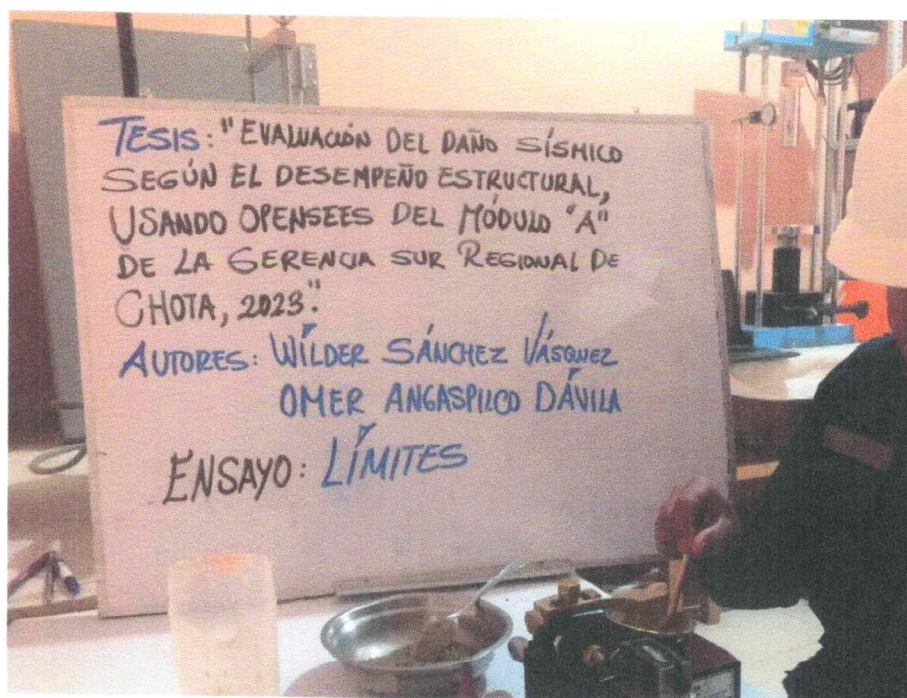 TESIS: "EVALUACIÓN DEL DAÑO SÍSMICO
SEGÚN EL DESEMPEÑO ESTRUCTURAL,
USANDO OPENSEES DEL MÓDULO "A"
DE LA GERENCIA SUR REGIONAL DE
CHOTA, 2023".
AUTORES: WÍLDER SÁNCHEZ VÁSQUEZ
OMER ANGASPILCO DÁVILA
ENSAYO: LÍMITES